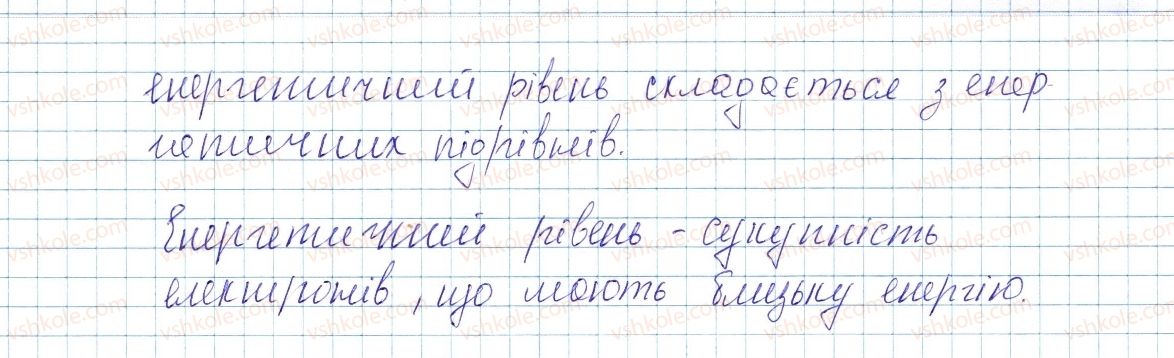 енергетичний рівень складається з енер-
гетичних підрівнів.
Енергетичний рівень - сукупність
електронів, що мають близьку енергію.